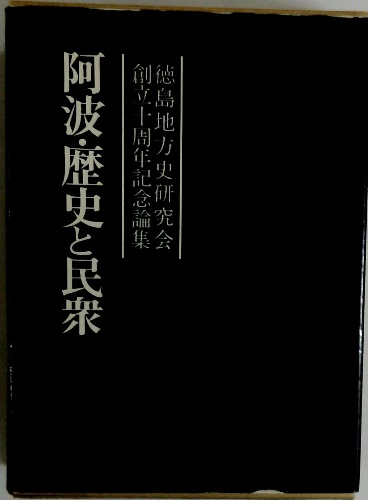 徳島地方史研究会
創立十周年記念論集
阿波・歴史と民衆